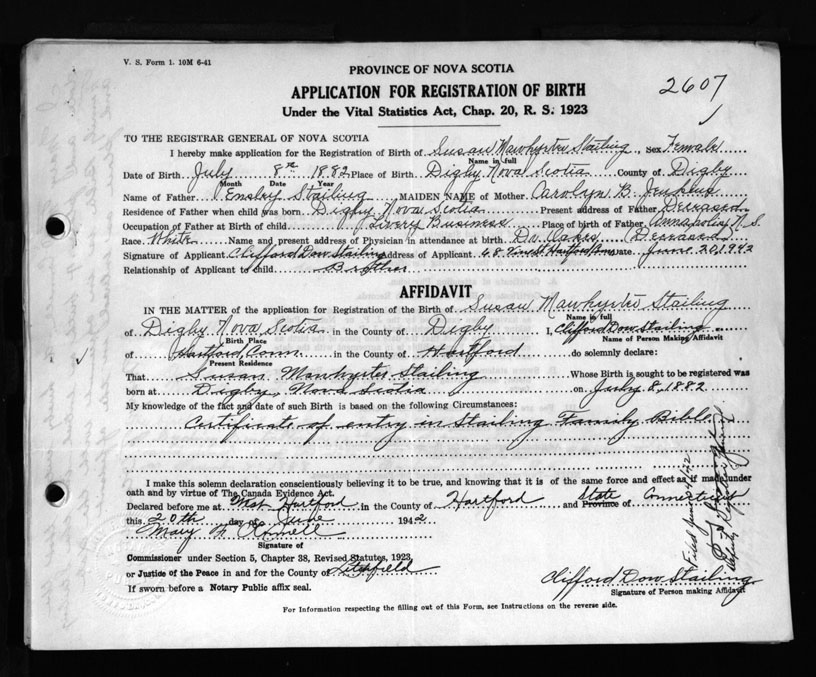 V. S. Form 1. 10M 6-41
PROVINCE OF NOVA SCOTIA
APPLICATION FOR REGISTRATION OF BIRTH
2607
Under the Vital Statistics Act, Chap. 20, R. S. 1923
TO THE REGISTRAR GENERAL OF NOVA SCOTIA
I hereby make application for the Registration of Birth of Susan Mawhyrter Stailing, Sex Female
Name in full
Date of Birth July 8th 1882 Place of Birth Digby Nova Scotia County of Digby
Month Date Year
Name of Father Ensley Stailing MAIDEN NAME of Mother Carolyn B.
Residence of Father when child was born Digby Nova Scotia Present address of Father Deceased
Occupation of Father at Birth of child Livery Business Place of birth of Father Annapolis, N.S.
Race White Name and present address of Physician in attendance at birth Dr. Oakes Deceased
Signature of Applicant Clifford Dow Stailing Address of Applicant 68 Hartford Conn Date June 20, 1942
Relationship of Applicant to child Brother
AFFIDAVIT
IN THE MATTER of the application for Registration of the Birth of Susan Mawhyrter Stailing
Name in full
of Digby Nova Scotia in the County of Digby I, Clifford Dow Stailing
Birth Place Name of Person Making Affidavit
of Hartford Conn in the County of Hartford do solemnly declare:
Present Residence
That Susan Mawhyrter Stailing Whose Birth is sought to be registered was
born at Digby, Nova Scotia on July 8, 1882
My knowledge of the fact and date of such Birth is based on the following Circumstances:
Certificate of entry in Stailing Family Bible
I make this solemn declaration conscientiously believing it to be true, and knowing that it is of the same force and effect as if made under
oath and by virtue of The Canada Evidence Act.
Declared before me at West Hartford in the County of Hartford State and Province of Connecticut
this 20th day of June 1942
Mary
Signature of
Commissioner under Section 5, Chapter 38, Revised Statutes, 1923,
or Justice of the Peace in and for the County of Litchfield
If sworn before a Notary Public affix seal.
Clifford Dow Stailing
Signature of Person making Affidavit
For Information respecting the filling out of this Form, see Instructions on the reverse side.
Filed